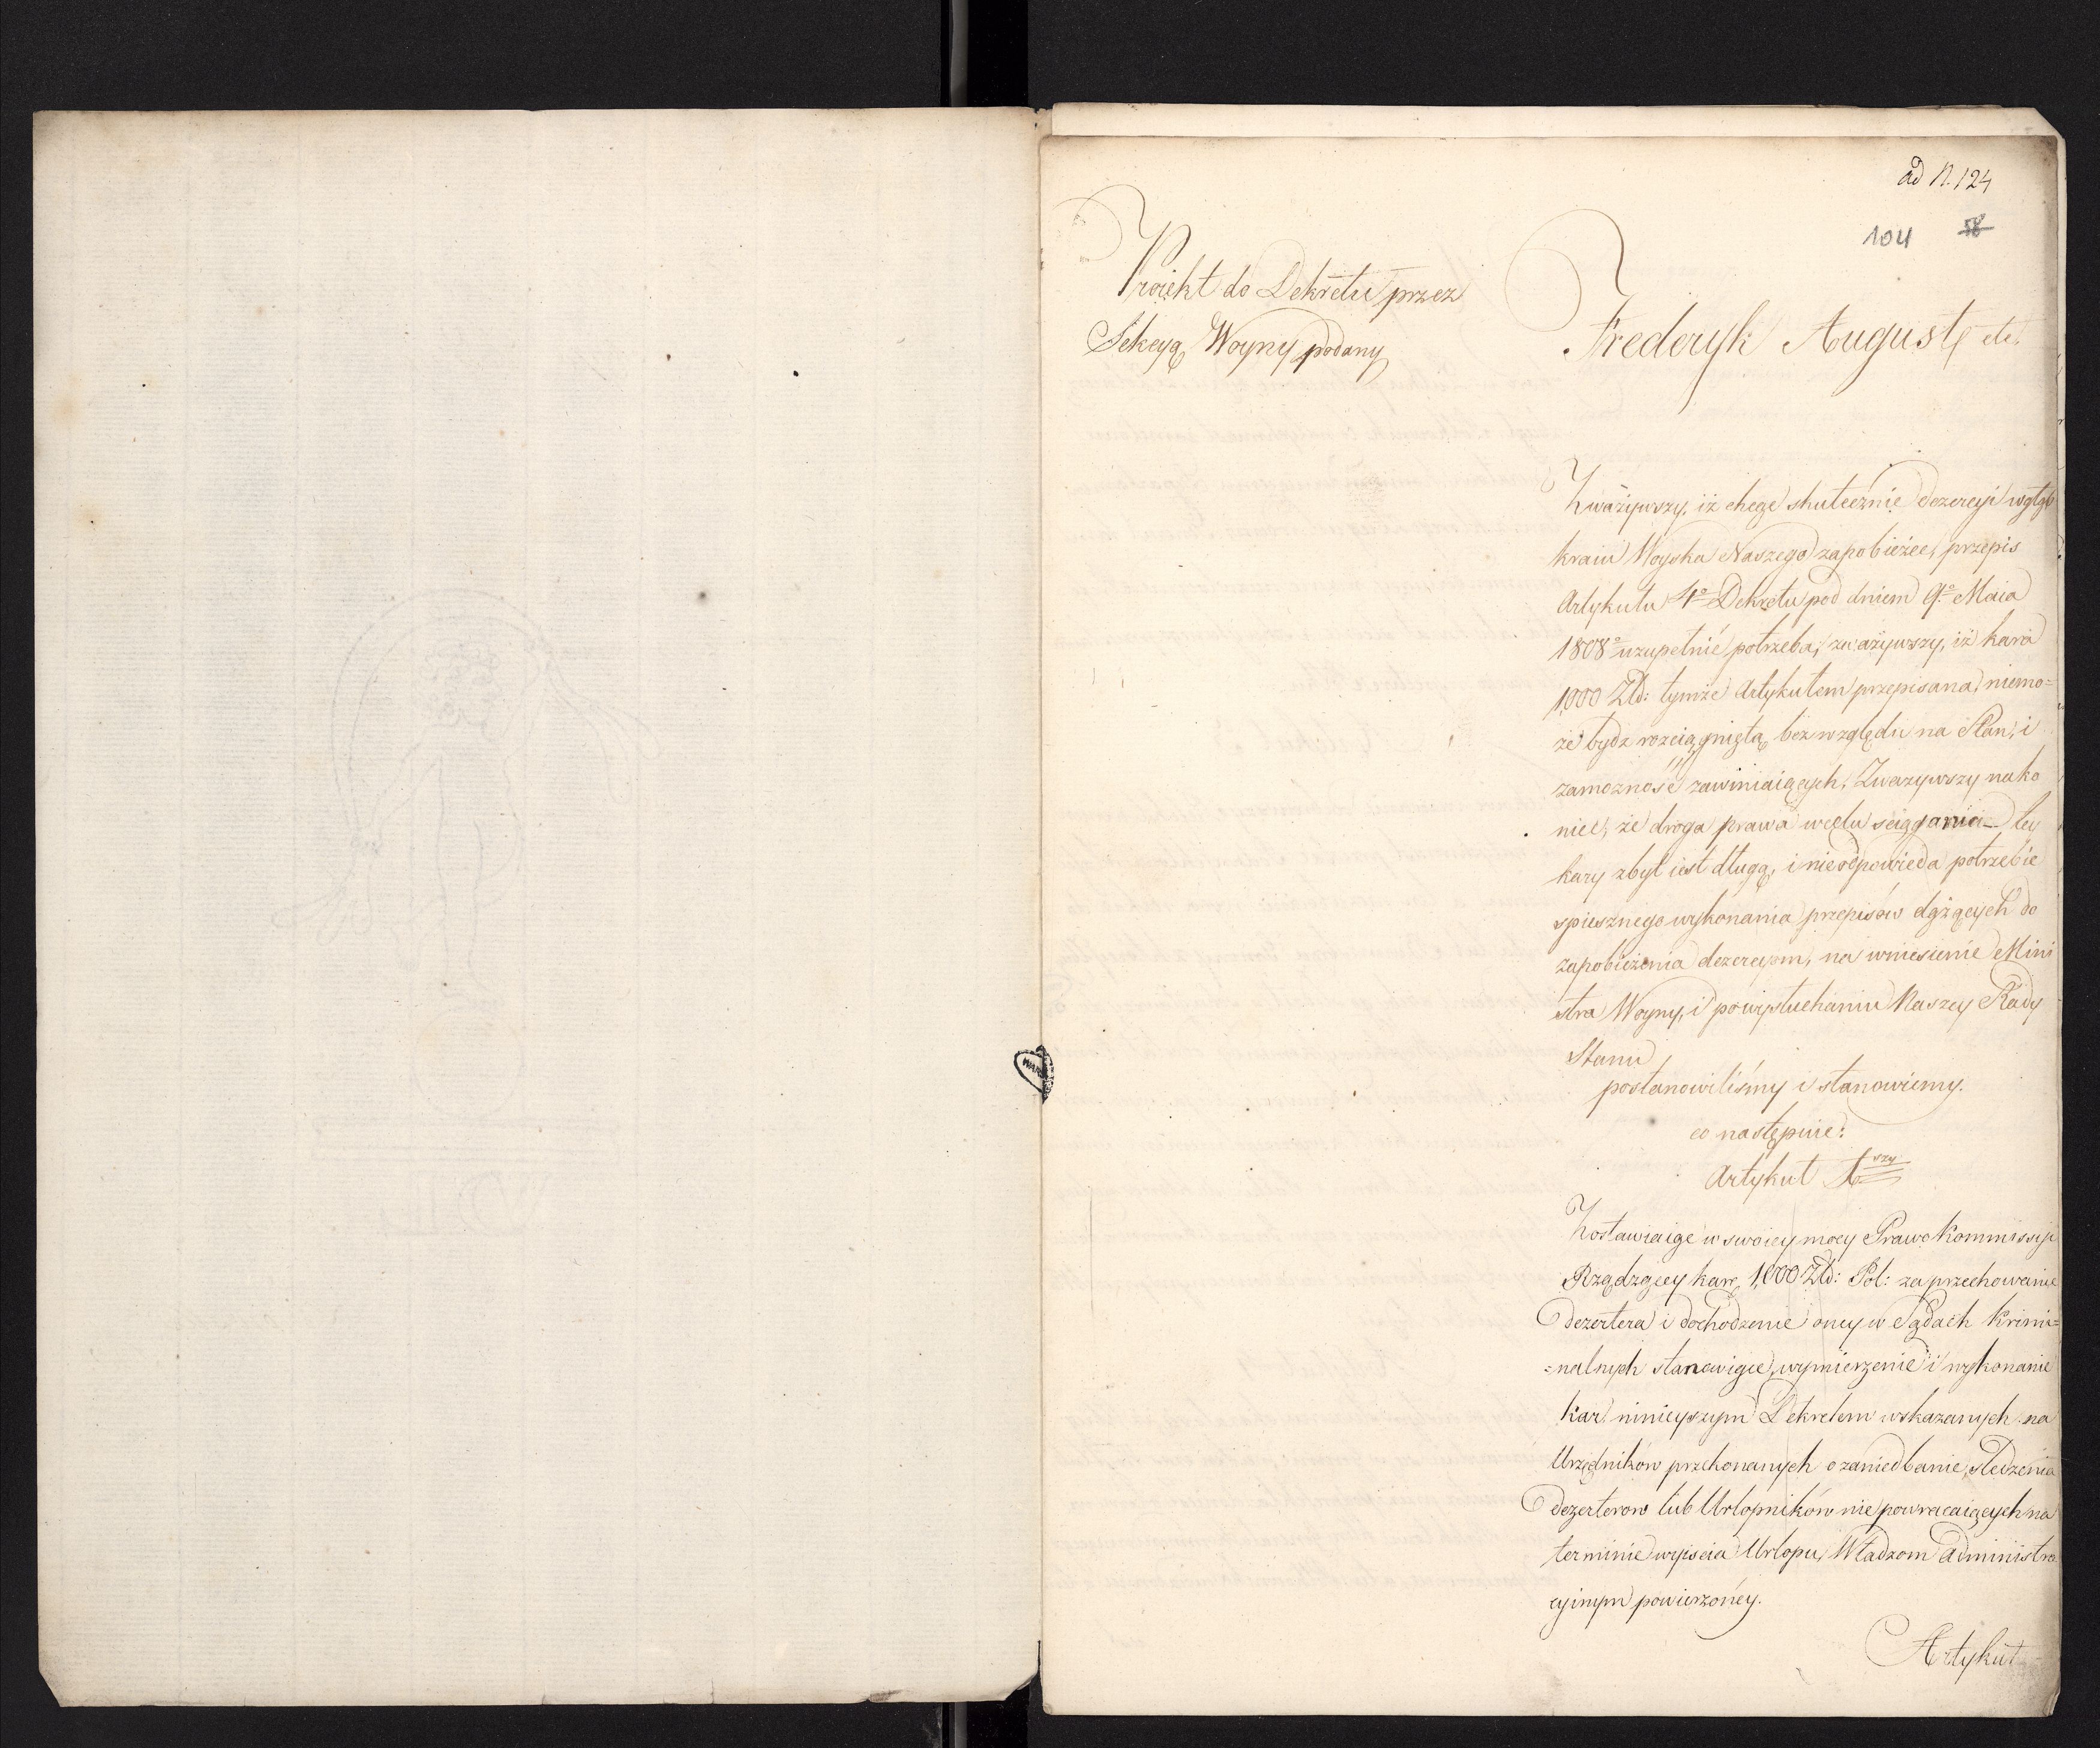 ad N. 124
104 58
Proiekt do Dekretu przez
Sekcyą Woyny podany
Frederyk August etc.
Zważywszy, iż chcąc skutecznie dezercyi wgłąb
kraiu Woyska Naszego zapobieżec, przepis
Artykułu 4º Dekretu pod dniem 9º Maia
1808º uzupełnić potrzeba, zważywszy, iż kara
1,000 Zł: tymże Artykułem przepisana, niemo=
że bydz rozciągniętą bez względu na Stan, i
zamoznosć zawiniaiących, Zwazywszy nako
niec, że droga prawa wcelu sciągania tey
kary zbyt iest długą, i nieodpowieda potrzebie
spiesznego wykonania przepisów dążących do
zapobieżenia dezercyom, na wniesienie Mini
stra Woyny, i powysłuchaniu Naszey Rady
Stanu,
postanowiliśmy i stanowiemy.
co następuie:
Artykuł 1szy
Zostawiaiąc w swoiey mocy Prawo Kommissyi
Rządzącey karę 1,000 Zł: Pol: za przechowanie
dezertera i dochodzenie oney w Sądach Krimi=
=nalnych stanowiące, wymierzenie i wykonanie
kar ninieyszym Dekretem wskazanych na
Urzędników przekonanych o zaniedbanie, sledzenia
dezerterow lub Urlopników nie powracaiących na
terminie wyiscia Urlopu, Władzom administra
cyinym powierzoney.
Artykuł